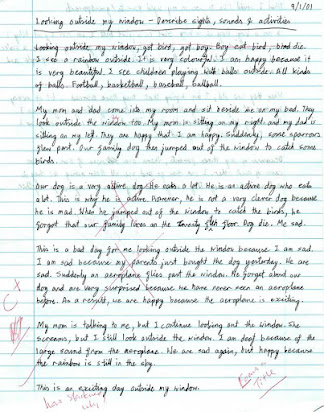 9/1/01
Looking outside my window - Describe sights, sounds & activities
Looking outside my window, got bird, got boy. Boy eat bird, bird die.
I see a rainbow outside. It is very colourful. I am happy because it
is very beautiful. I see children playing with balls outside. All kinds
of balls. Football, basketball, baseball, ballball.
My mom and dad come into my room and sit beside me on my bed. They
look outside the window too. My mom is sitting on my right and my dad is
sitting on my left. They are happy that I am happy. Suddenly, some sparrows
flew past. Our family dog then jumped out of the window to catch some
birds.
Our dog is a very active dog. He eats a lot. He is an active dog who eats
a lot. This is why he is active. However, he is not a very clever dog because
he is mad. When he jumped out of the window to catch the birds, he
forgot that our family lives on the twenty floor. Dog die. Me sad.
This is a bad day for me looking outside the window because I am sad.
I am sad because my parents just bought the dog yesterday. We are
sad. Suddenly an aeroplane flies past the window. We forget about our
dog and are very surprised because we have never seen an aeroplane
before. As a result, we are happy because the aeroplane is exciting.
My mom is talking to me, but I continue looking out the window. She
screams, but I still look outside the window. I am deaf because of the
large sound from the aeroplane. We are sad again, but happy because
the rainbow is still in the sky.
This is an exciting day outside my window.
C+